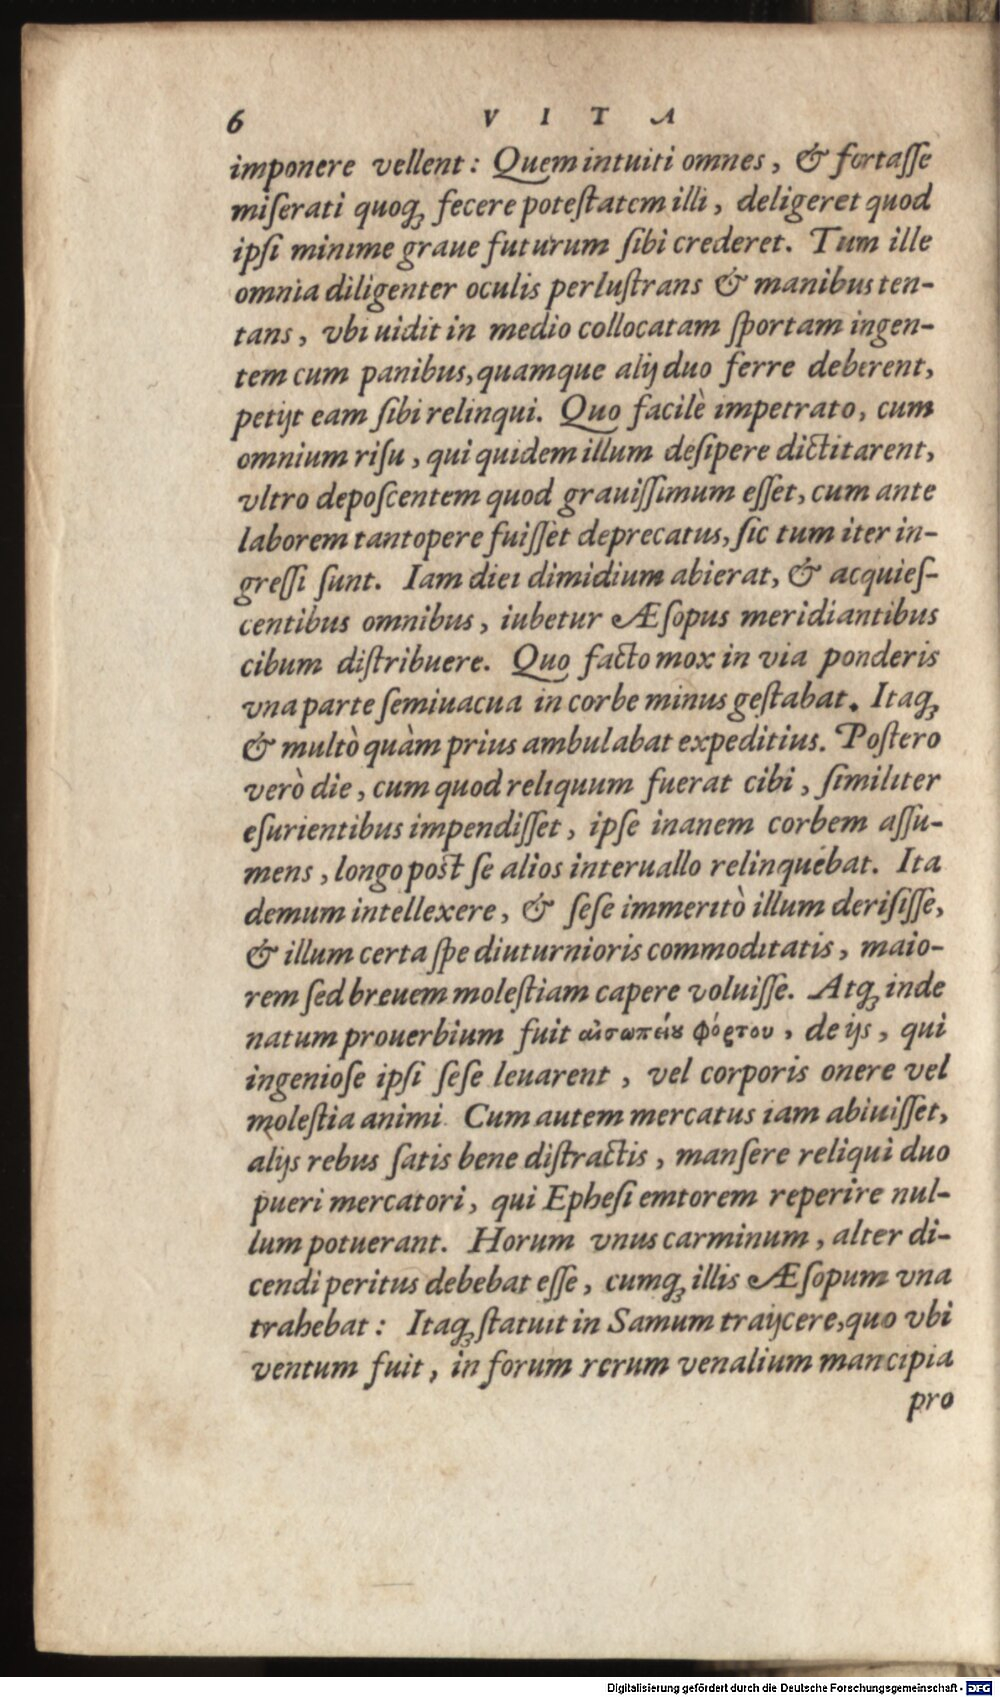 6 VITA
imponere vellent: Quem intuiti omnes, & fortaſſe
miſerati quoq; fecere poteſtatem illi, deligeret quod
ipſi minime graue futurum ſibi crederet. Tum ille
omnia diligenter oculis perluſtrans & manibus ten-
tans, vbi uidit in medio collocatam ſportam ingen-
tem cum panibus, quamque alij duo ferre deberent,
petijt eam ſibi relinqui. Quo facilè impetrato, cum
omnium riſu, qui quidem illum deſipere dictitarent,
vltro depoſcentem quod grauiſſimum eſſet, cum ante
laborem tantopere fuiſſet deprecatus, ſic tum iter in-
greſſi ſunt. Iam diei dimidium abierat, & acquieſ-
centibus omnibus, iubetur Æſopus meridiantibus
cibum diſtribuere. Quo facto mox in via ponderis
vna parte ſemiuacua in corbe minus geſtabat. Itaq;
& multò quàm prius ambulabat expeditius. Poſtero
verò die, cum quod reliquum fuerat cibi, ſimiliter
eſurientibus impendiſſet, ipſe inanem corbem aſſu-
mens, longo poſt ſe alios interuallo relinquebat. Ita
demum intellexere, & ſeſe immeritò illum deriſiſſe,
& illum certa ſpe diuturnioris commoditatis, maio-
rem ſed breuem moleſtiam capere voluiſſe. Atq; inde
natum prouerbium fuit αἰσωπείου φόρτου, de ijs, qui
ingenioſe ipſi ſeſe leuarent, vel corporis onere vel
moleſtia animi. Cum autem mercatus iam abiuiſſet,
alijs rebus ſatis bene diſtractis, manſere reliqui duo
pueri mercatori, qui Epheſi emtorem reperire nul-
lum potuerant. Horum vnus carminum, alter di-
cendi peritus debebat eſſe, cumq; illis Æſopum vna
trahebat: Itaq; ſtatuit in Samum traijcere, quo vbi
ventum fuit, in forum rerum venalium mancipia
pro
Digitalisierung gefördert durch die Deutsche Forschungsgemeinschaft - DFG